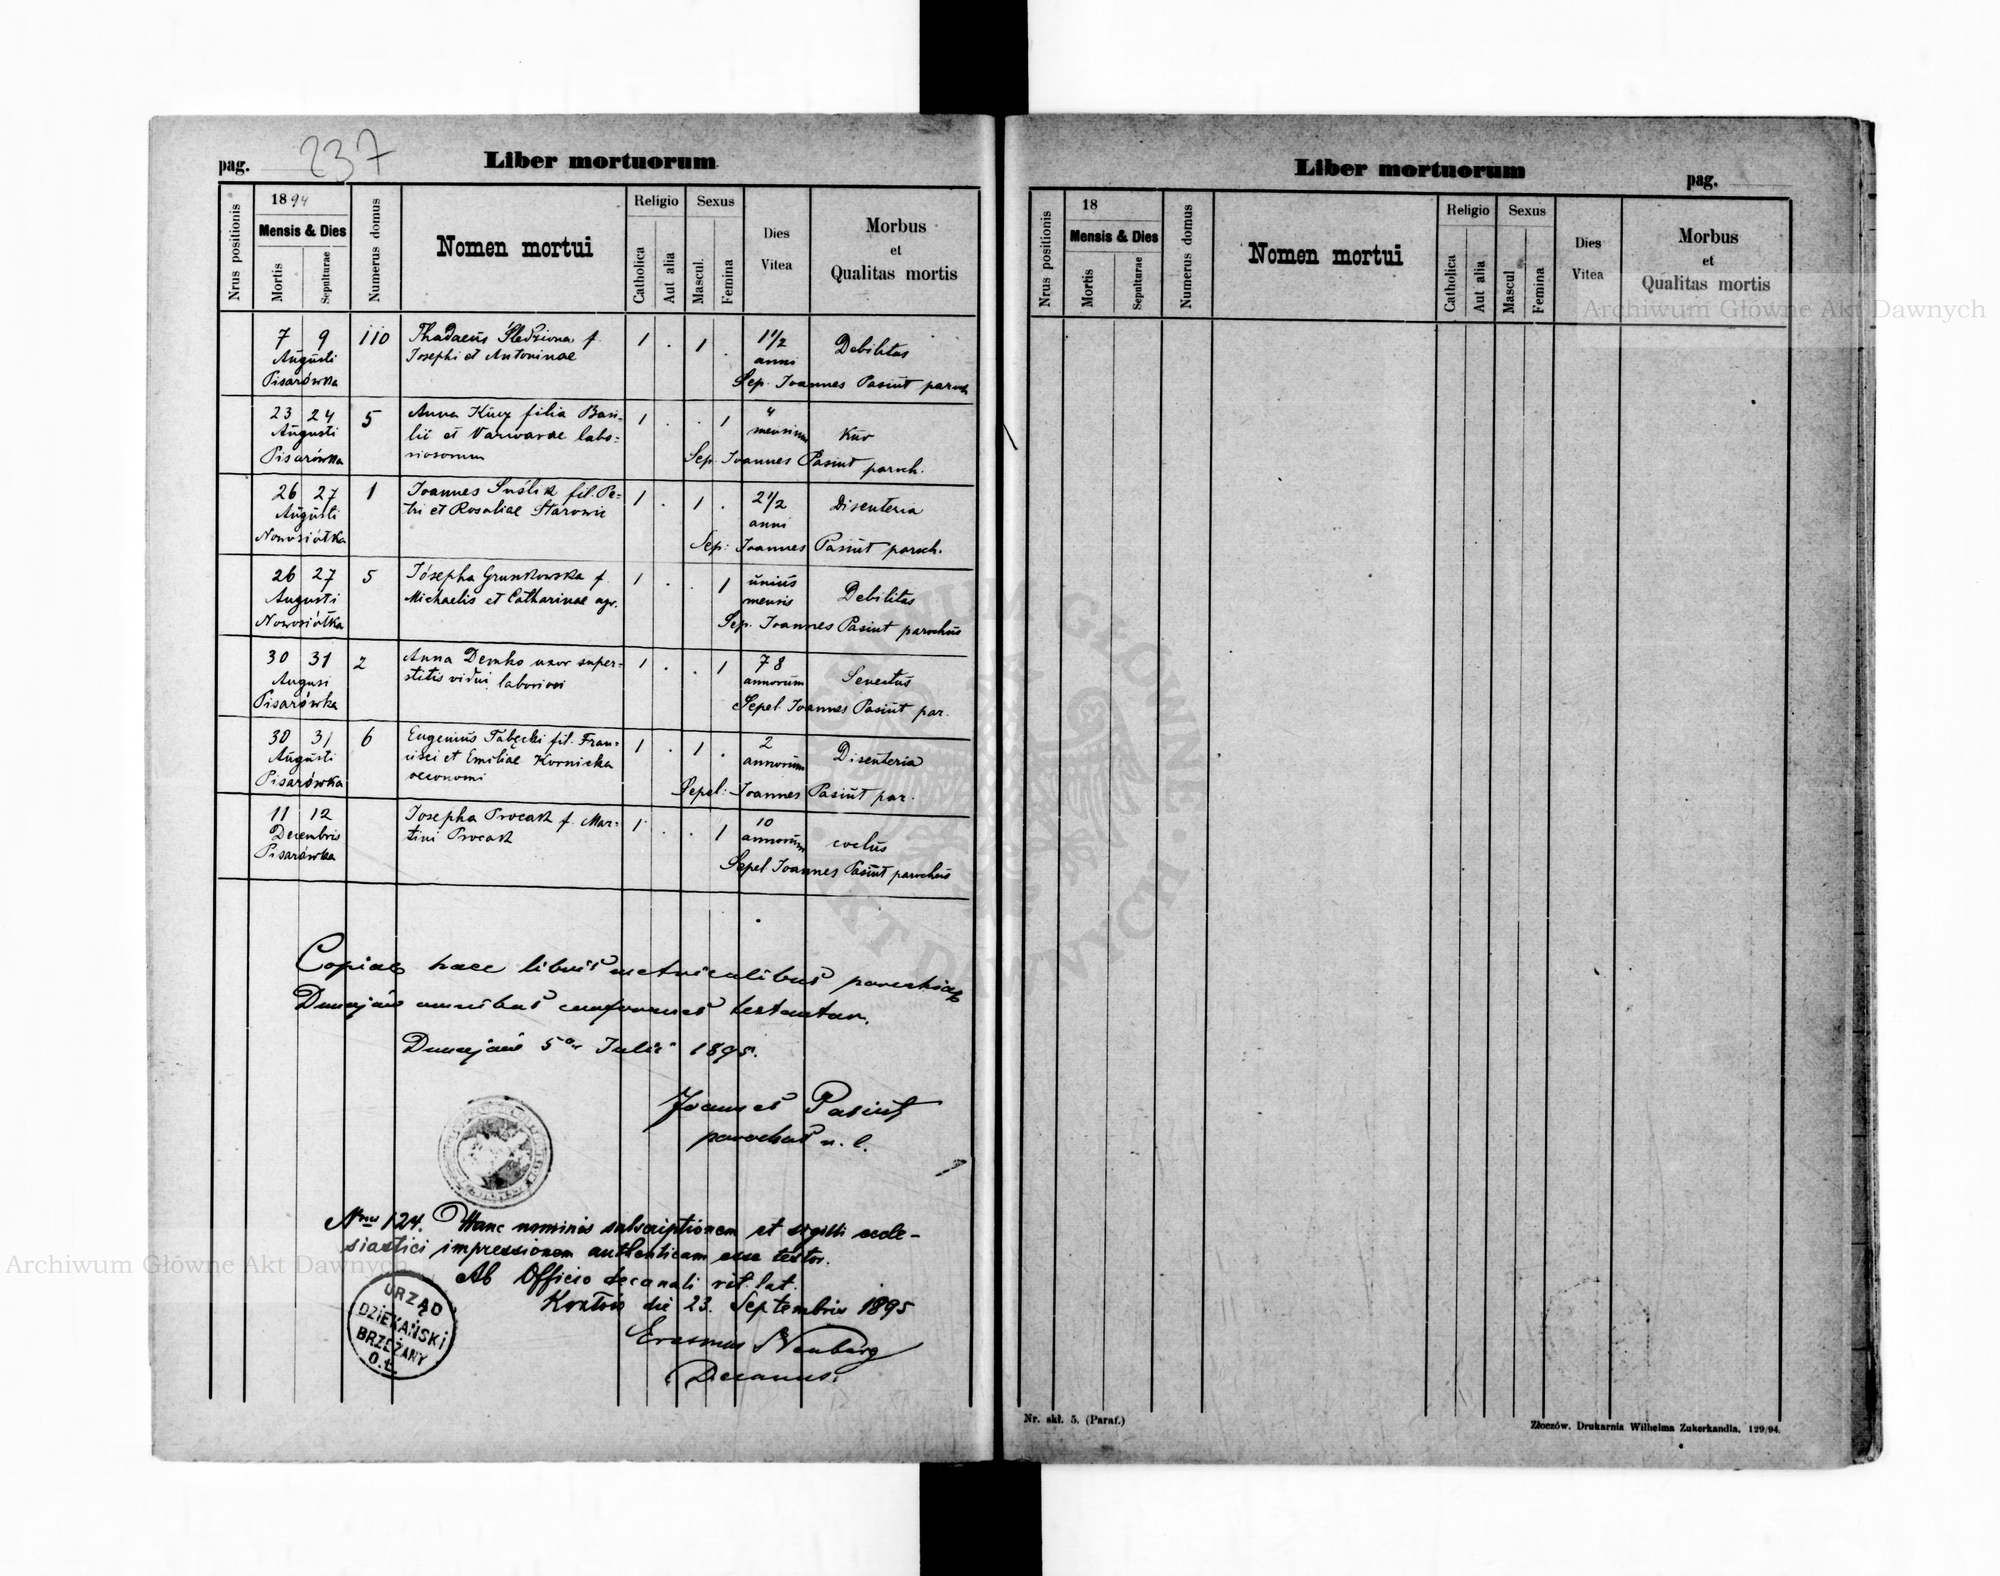 pag. 237
Liber mortuorum
Nrus positionis
1894
Mensis & Dies
Mortis
Sepulturae
Numerus domus
Nomen mortui
Religio
Catholica
Aut alia
Sexus
Mascul.
Femina
Dies
Vitea
Morbus
et
Qualitas mortis
7 9 110 Thadaeus Śledziona f. 1 . 1 . 1 1/2 Debilitas
Augusti Josephi et Antoninae anni
Pisarówka Sep. Joannes Pasiut paroch
23 24 5 Anna filia Basi- 1 . . 1 4
Augusti lii et Varvarae labo- mensium
Pisarówka riosorum Sep. Joannes Pasiut paroch.
26 27 1 Joannes Suślik fil. Pe- 1 . 1 . 2 1/2 Disenteria
Augusti tri et Rosaliae anni
Nowosiółka Sep: Joannes Pasiut paroch.
26 27 5 Józepha Grunkowska f. 1 . . 1 unius Debilitas
Augusti Michaelis et Catharinae agr. mensis
Nowosiółka Sep. Joannes Pasiut parochus
30 31 2 Anna Demko uxor super- 1 . . 1 78 Senectus
Augusi stitis vidui laboriosi annorum
Pisarówka Sepel. Joannes Pasiut par.
30 31 6 Eugenius Tabęcki fil. Fran- 1 . 1 . 2 Disenteria
Augusti cisci et Emiliae Kornicka annorum
Pisarówka oeconomi Sepel. Joannes Pasiut par.
11 12 Josepha Procak f. Mar- 1 . . 1 10
Decembris tini Procak annorum
Pisarówka Sepel Joannes Pasiut parochus
Copiae haec libris metricalibus parochiae
omnibus conformes testantur.
5 Julii 1895.
Joannes Pasiut
parochus r. l.
Nrus 124. Hanc nominis subscriptionem et sigilli eccle-
siastici impressionem authenticam esse testor.
Ab Officio decanali rit. lat.
die 23. Septembris 1895
Erasmus Neuburg
Decanus.
URZĄD
DZIEKAŃSKI
BRZEŻANY
O. Ł.
Liber mortuorum
pag.
Nrus positionis
18
Mensis & Dies
Mortis
Sepulturae
Numerus domus
Nomen mortui
Religio
Catholica
Aut alia
Sexus
Mascul
Femina
Dies
Vitea
Morbus
et
Qualitas mortis
Nr. skł. 5. (Paraf.)
Złoczów. Drukarnia Wilhelma Zukerkandla. 129/94.
Archiwum Główne Akt Dawnych
Archiwum Główne Akt Dawnych
ARCHIWUM GŁÓWNE
AKT DAWNYCH